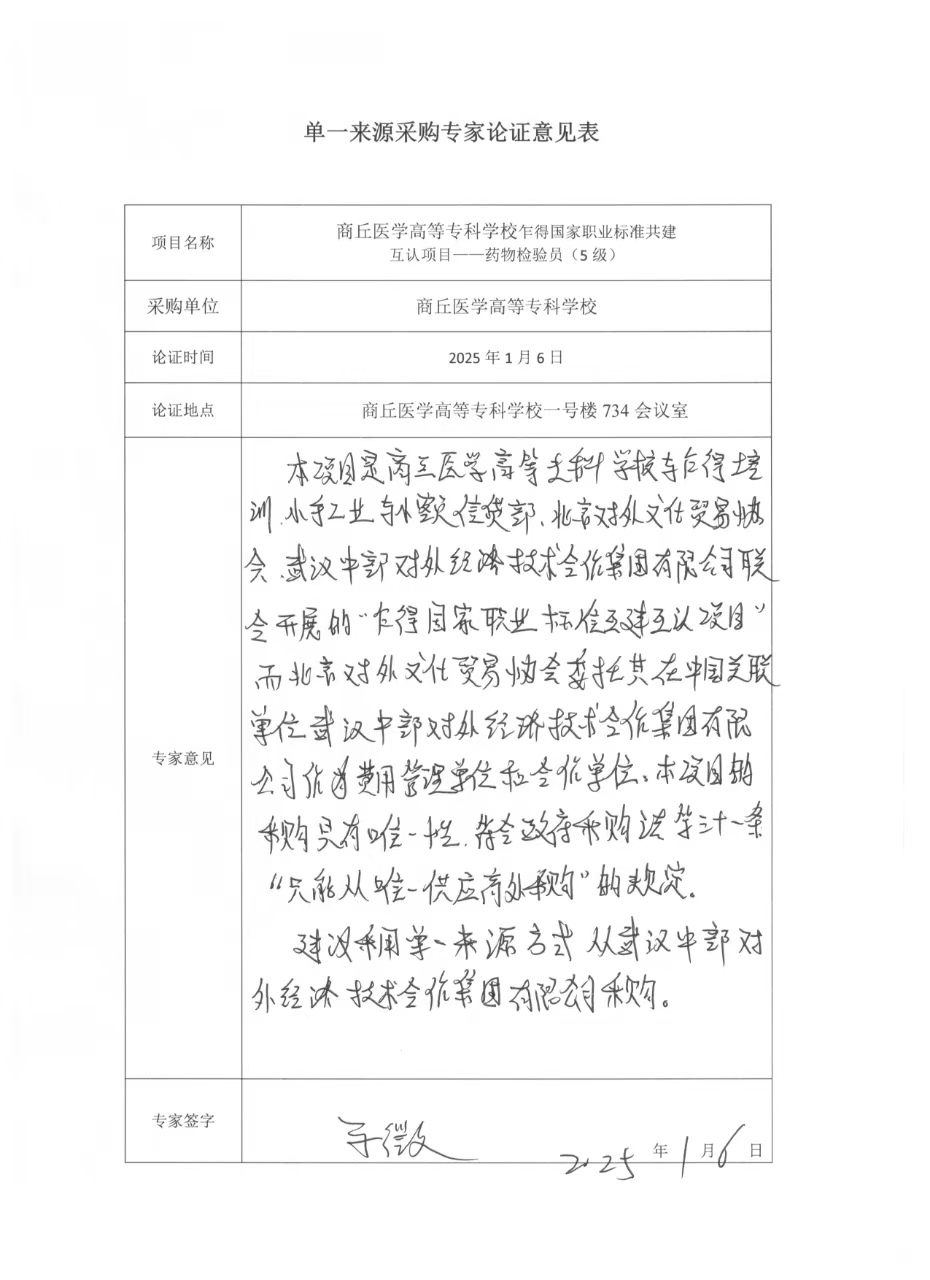 单一来源采购专家论证意见表
项目名称
商丘医学高等专科学校乍得国家职业标准共建
互认项目——药物检验员（5 级）
采购单位
商丘医学高等专科学校
论证时间
2025 年 1 月 6 日
论证地点
商丘医学高等专科学校一号楼 734 会议室
专家意见
本项目是商丘医学高等专科学校与乍得培
训、小手工业与小额信贷部、北京对外文化贸易协
会、武汉中部对外经济技术合作集团有限公司联
合开展的“乍得国家职业标准互建互认项目”
而北京对外文化贸易协会委托其在中国关联
单位武汉中部对外经济技术合作集团有限
公司作为费用管理单位和合作单位、本项目的
采购具有唯一性，符合政府采购法第三十一条
“只能从唯一供应商处采购”的规定。
建议采用单一来源方式从武汉中部对
外经济技术合作集团有限公司采购。
专家签字
2025 年 1 月 6 日